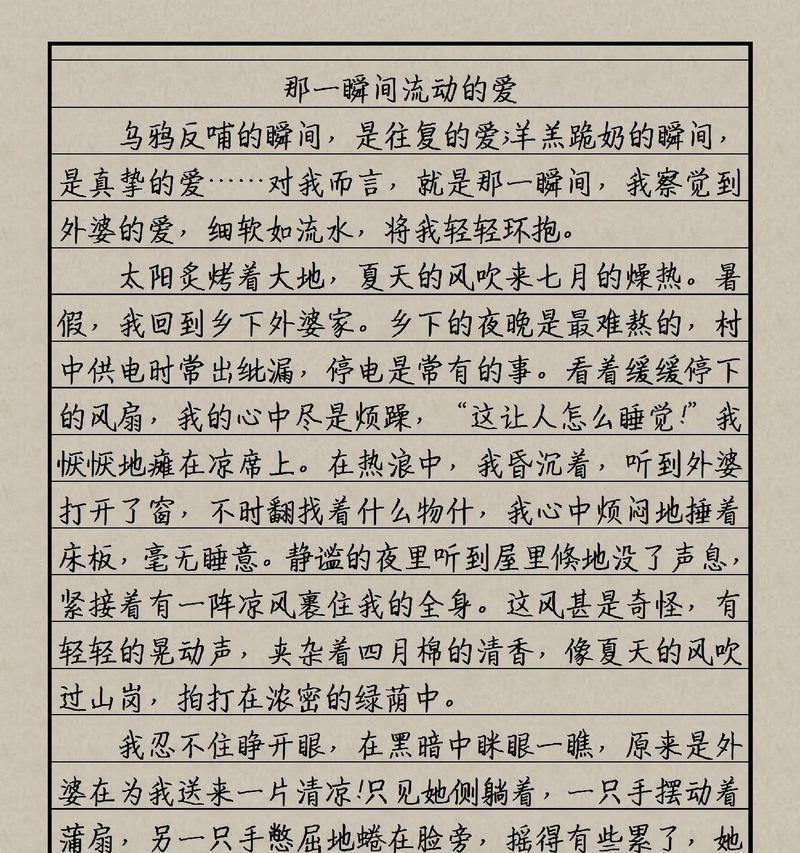 那一瞬间流动的爱
乌鸦反哺的瞬间，是往复的爱;羊羔跪奶的瞬间，
是真挚的爱……对我而言，就是那一瞬间，我察觉到
外婆的爱，细软如流水，将我轻轻环抱。
太阳炙烤着大地，夏天的风吹来七月的燥热。暑
假，我回到乡下外婆家。乡下的夜晚是最难熬的，村
中供电时常出纰漏，停电是常有的事。看着缓缓停下
的风扇，我的心中尽是烦躁，“这让人怎么睡觉!”我
恹恹地瘫在凉席上。在热浪中，我昏沉着，听到外婆
打开了窗，不时翻找着什么物什，我心中烦闷地捶着
床板，毫无睡意。静谧的夜里听到屋里倏地没了声息，
紧接着有一阵凉风裹住我的全身。这风甚是奇怪，有
轻轻的晃动声，夹杂着四月棉的清香，像夏天的风吹
过山岗，拍打在浓密的绿荫中。
我忍不住睁开眼，在黑暗中眯眼一瞧，原来是外
婆在为我送来一片清凉!只见她侧躺着，一只手摆动着
蒲扇，另一只手憋屈地蜷在脸旁，摇得有些累了，她